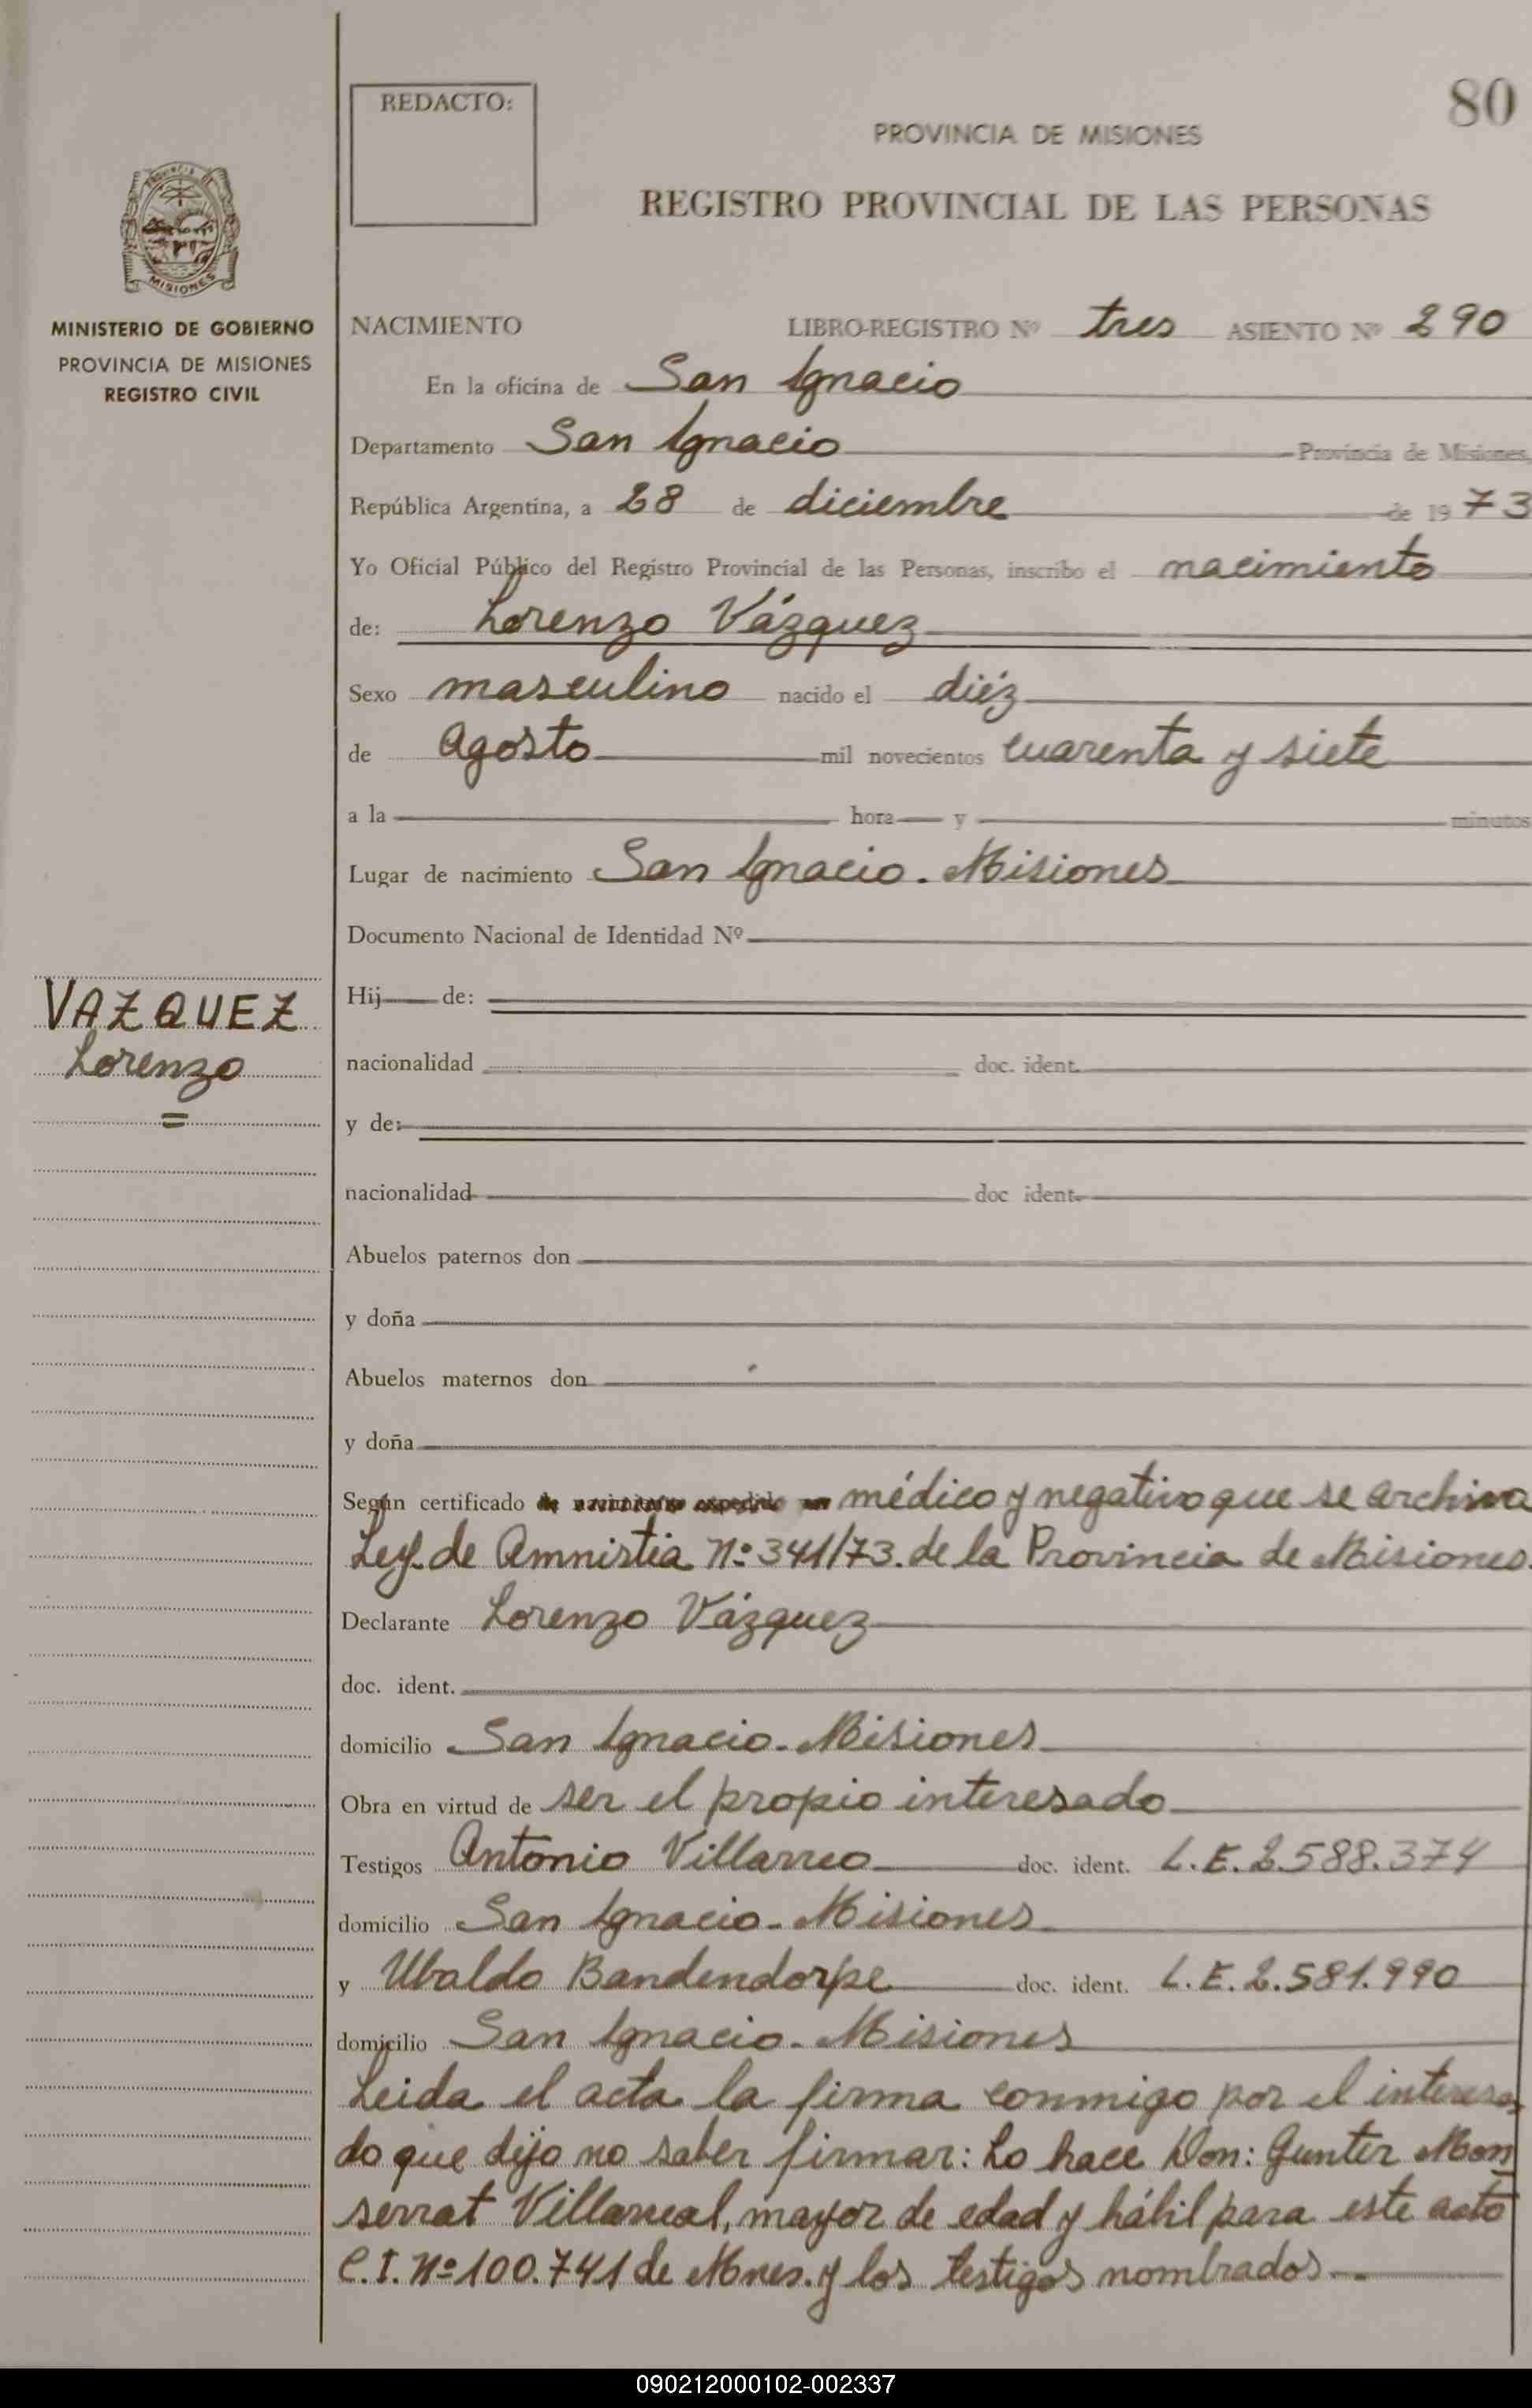 80
REDACTO:
PROVINCIA DE MISIONES
REGISTRO PROVINCIAL DE LAS PERSONAS
PROVINCIA DE
MISIONES
MINISTERIO DE GOBIERNO
PROVINCIA DE MISIONES
REGISTRO CIVIL
NACIMIENTO LIBRO-REGISTRO Nº tres ASIENTO Nº 290
En la oficina de San Ignacio
Departamento San Ignacio Provincia de Misiones,
República Argentina, a 28 de diciembre de 1973
Yo Oficial Público del Registro Provincial de las Personas, inscribo el nacimiento
de: Lorenzo Vázquez
Sexo masculino nacido el diéz
de Agosto mil novecientos cuarenta y siete
a la hora y minutos
Lugar de nacimiento San Ignacio. Misiones
Documento Nacional de Identidad Nº
VAZQUEZ
Lorenzo
=
Hij de:
nacionalidad doc. ident.
y de:
nacionalidad doc ident.
Abuelos paternos don
y doña
Abuelos maternos don
y doña
Según certificado de nacimiento expedido médico y negativo que se archiva
Ley de Amnistia Nº 341/73. de la Provincia de Misiones.
Declarante Lorenzo Vázquez
doc. ident.
domicilio San Ignacio - Misiones
Obra en virtud de ser el propio interesado
Testigos Antonio Villarreo doc. ident. L.E. 2.588.374
domicilio San Ignacio - Misiones
y Ubaldo Bandendorpe doc. ident. L.E. 2.581.990
domicilio San Ignacio - Misiones
Leida el acta la firma conmigo por el interesa
do que dijo no saber firmar: Lo hace Don: Gunter Mon
serrat Villarreal, mayor de edad y hábil para este acto
C.I. Nº 100.741 de Mnes. y los testigos nombrados -.
090212000102-002337